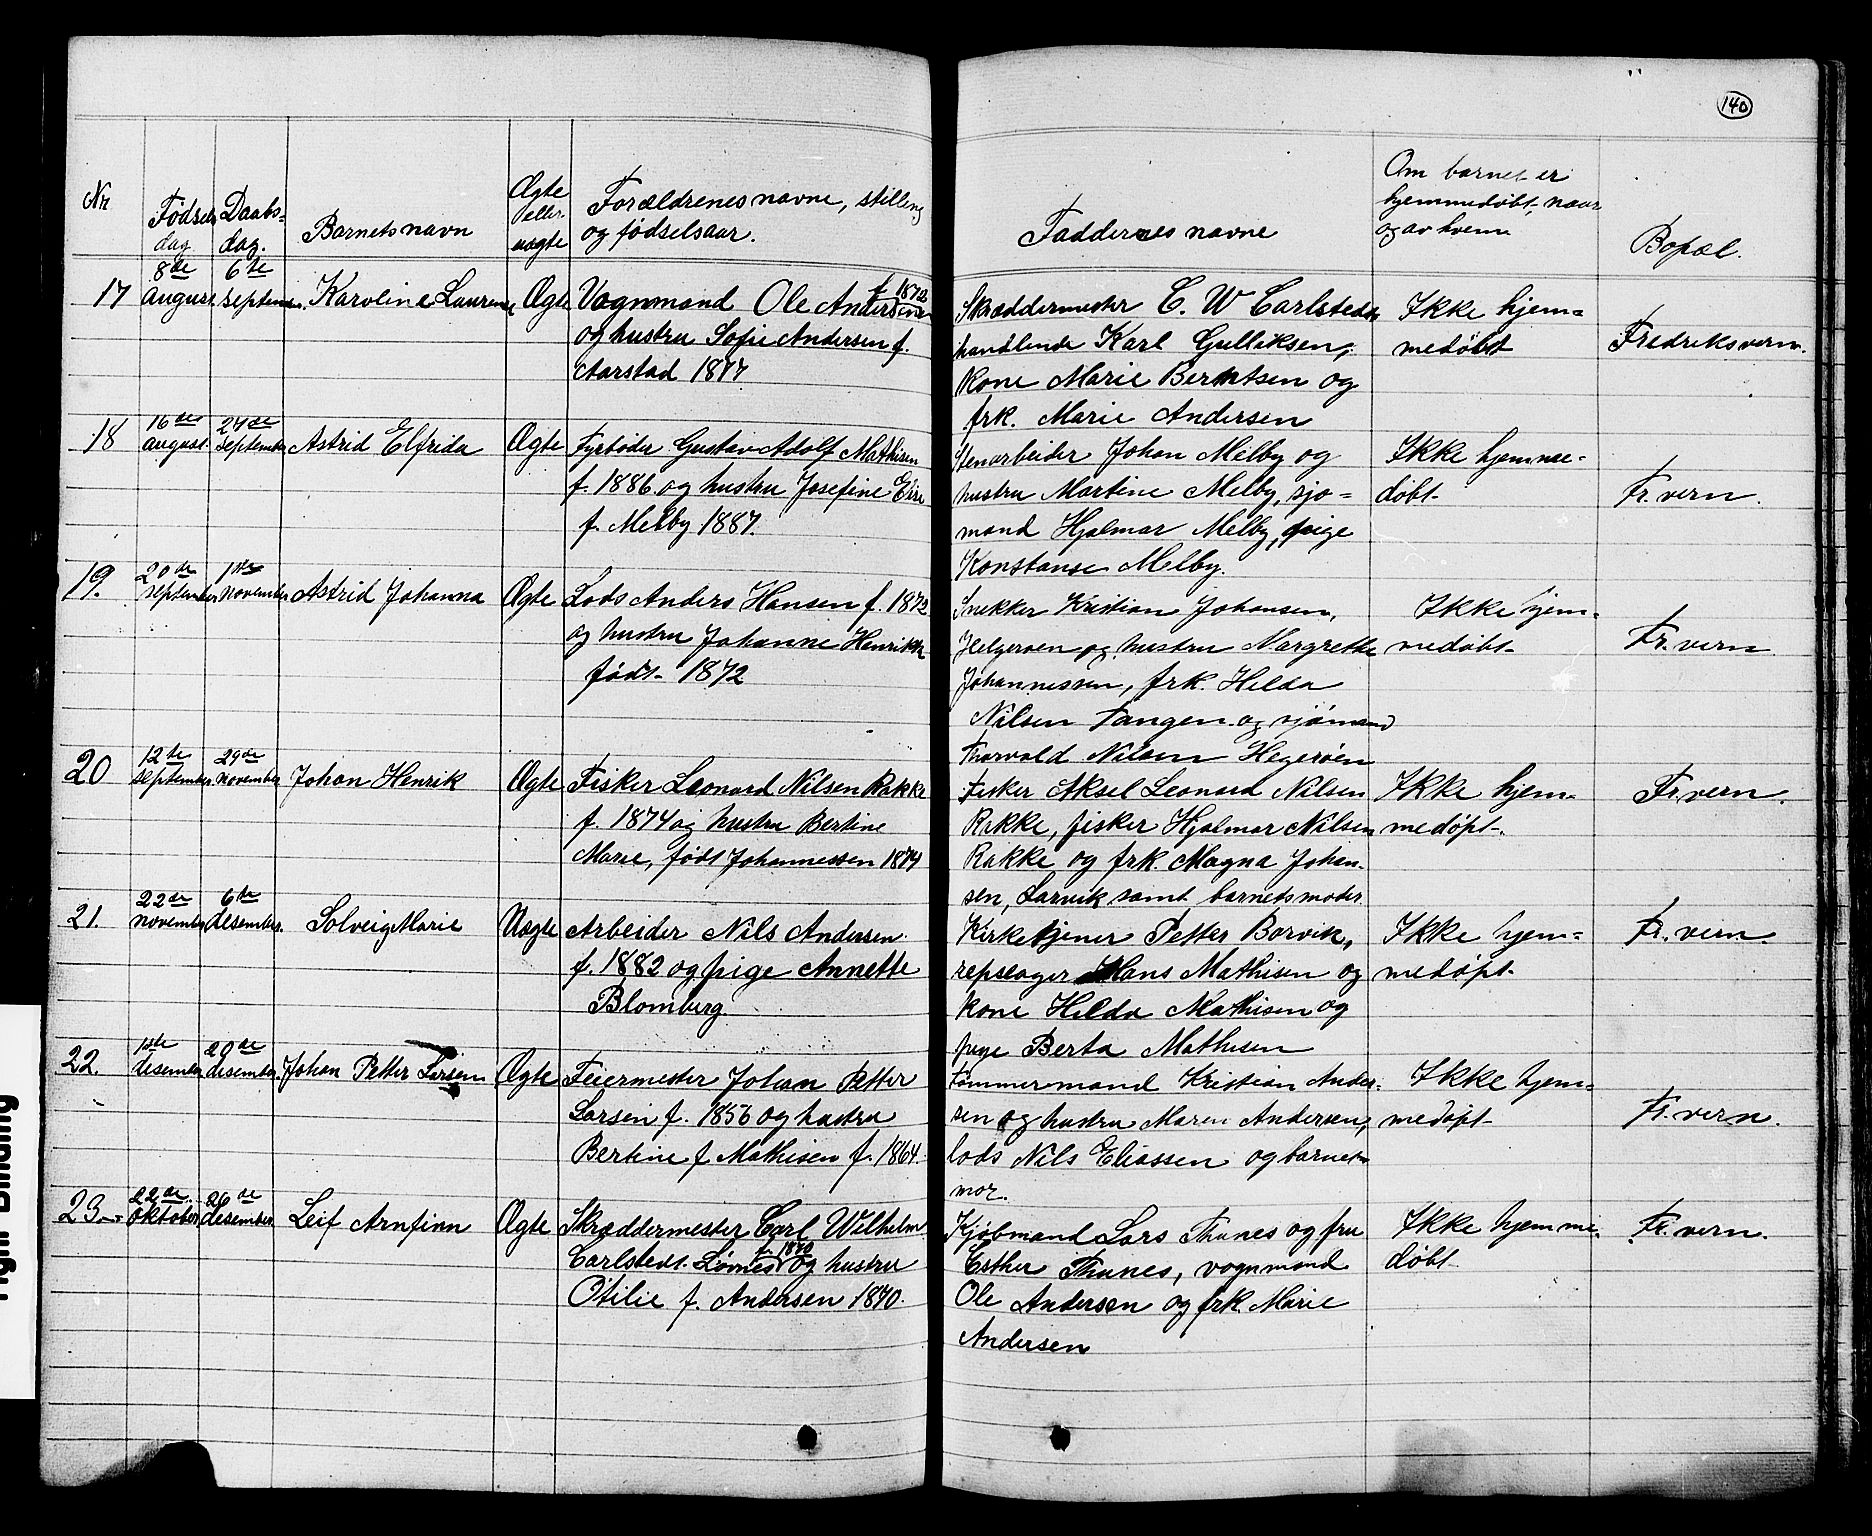 140
Nr
Fødsels
dag
Daabs-
dag.
Barnets navn
Ægte
eller
uægte
Forældrenes navne, stilling
og fødselsaar.
Faddernes navne
Om barnet er
hjemmedøbt, naar
og av hvem
Bopæl.
17
8de
august
6te
septem.
Karoline Laurense
Ægte
Vognmand Ole Andersen
f. 1872
og hustru Sofie Andersen f.
Aarstad 1877
Skræddermester C. W Carlstedt,
handlende Karl Gulliksen,
kone Marie Berntsen og
frk. Marie Andersen
Ikke hjem=
medøbt
Fredriksvern.
18
16de
august.
24de
september
Astrid Elfrida
Ægte
Fyrbøder Gustav Adolf Mathisen
f. 1886 og hustru Josefine
f. Melby 1887.
Stenarbeider Johan Melby og
hustru Martine Melby, sjø=
mand Hjalmar Melby, pige
Konstanse Melby.
Ikke hjemme-
døbt
Fr. vern.
19.
20de
september
1ste
november
Astrid Johanna
Ægte
Lods Anders Hansen f. 1872
og hustru Johanne Henrikke
født 1872
Snekker Kristian Johansen,
Helgeroen og hustru Margrethe
Johannessen, frk. Hilda
Nilsen Tangen og sjømand
Thorvald Nilsen Hegerøen
Ikke hjem-
medøbt
Fr. vern.
20
12te
september
29de
november
Johan Henrik
Ægte
Fisker Leonard Nilsen Rakke
f. 1874 og hustru Bertine
Marie, født Johannessen 1874
Fisker Aksel Leonard Nilsen
Rakke, fisker Hjalmar Nilsen
Rakke og frk. Magna Johan-
sen, Larvik samt barnets moder
Ikke hjem-
medøpt.
Fr. vern.
21.
22de
november
6te
desember.
Solveig Marie
Uægte
Arbeider Nils Andersen
f. 1882 og pige Annette
Blomberg.
Kirketjener Petter Borvik,
repslager Hans Mathisen og
kone Hilda Mathisen og
pige Berta Mathisen
Ikke hjem=
medøpt
Fr. vern.
22.
1ste
desember
20de
desember.
Johan Petter Larsen
Ægte
Feiermester Johan Petter
Larsen f. 1856 og hustru
Bertine f Mathisen f. 1864.
Tømmermand Kristian Ander-
sen og hustru Maren Andersen,
lods Nils Eliassen og barnets
mor.
Ikke hjem-
medøpt
Fr. vern.
23.
22de
oktober
26de
desember
Leif Arnfinn
Ægte
Skræddermester Carl Wilhelm
f. 1870
Carlstedt Lømes og hustru
Otilie f. Andersen 1870.
Kjøbmand Lars Thunes og fru
Esther Thunes, vognmand
Ole Andersen og frk. Marie
Andersen
Ikke hjemme-
døbt
Fr. vern.